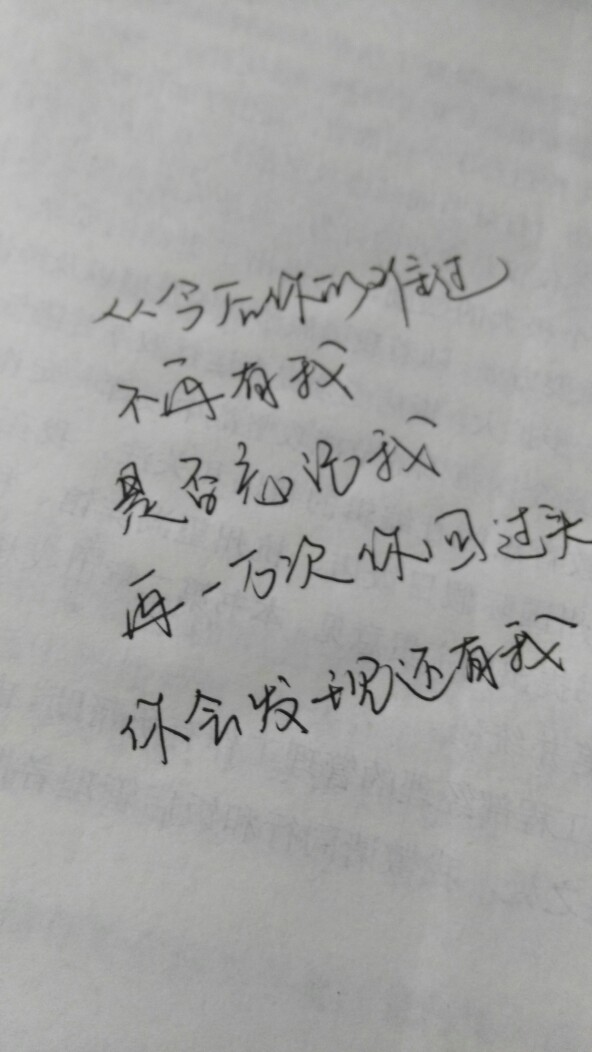 从今后你的难过
不再有我
是否忘记我
再一万次你回过头
你会发现还有我